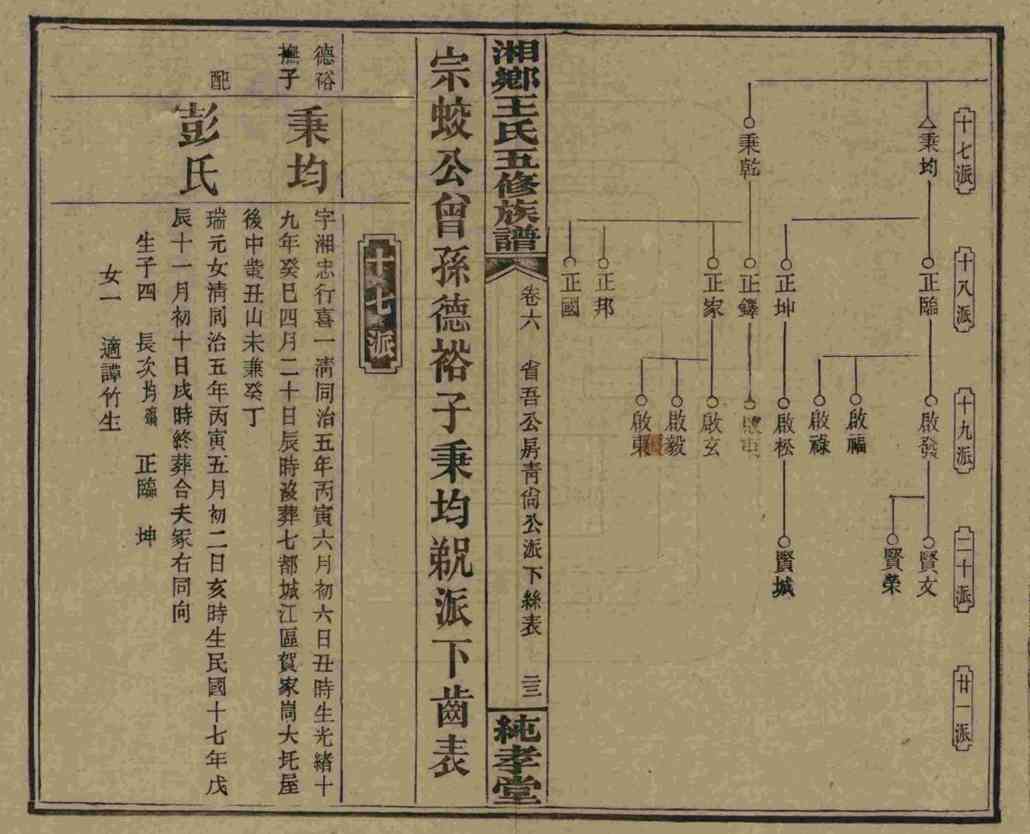 十七派
十八派
十九派
二十派
廿一派
秉均
秉乾
正臨
正坤
正鐸
正家
正邦
正國
啟發
啟福
啟祿
啟松
啟玄
啟毅
啟東
賢文
賢榮
賢城
湘鄉王氏五修族譜
卷六
省吾公房青尙公派下絲表
二三
純孝堂
宗蛟公曾孫德裕子秉均𥛬派下齒表
十七派
德裕
撫子
秉均
字湘忠行喜一淸同治五年丙寅六月初六日丑時生光緒十
九年癸巳四月二十日辰時歿葬七都城江區賀家崗大圫屋
後中嵗丑山未兼癸丁
配
彭氏
瑞元女淸同治五年丙寅五月初二日亥時生民國十七年戊
辰十一月初十日戌時終葬合夫冢右同向
生子四 長次均殤 正臨 坤
女一 適譚竹生